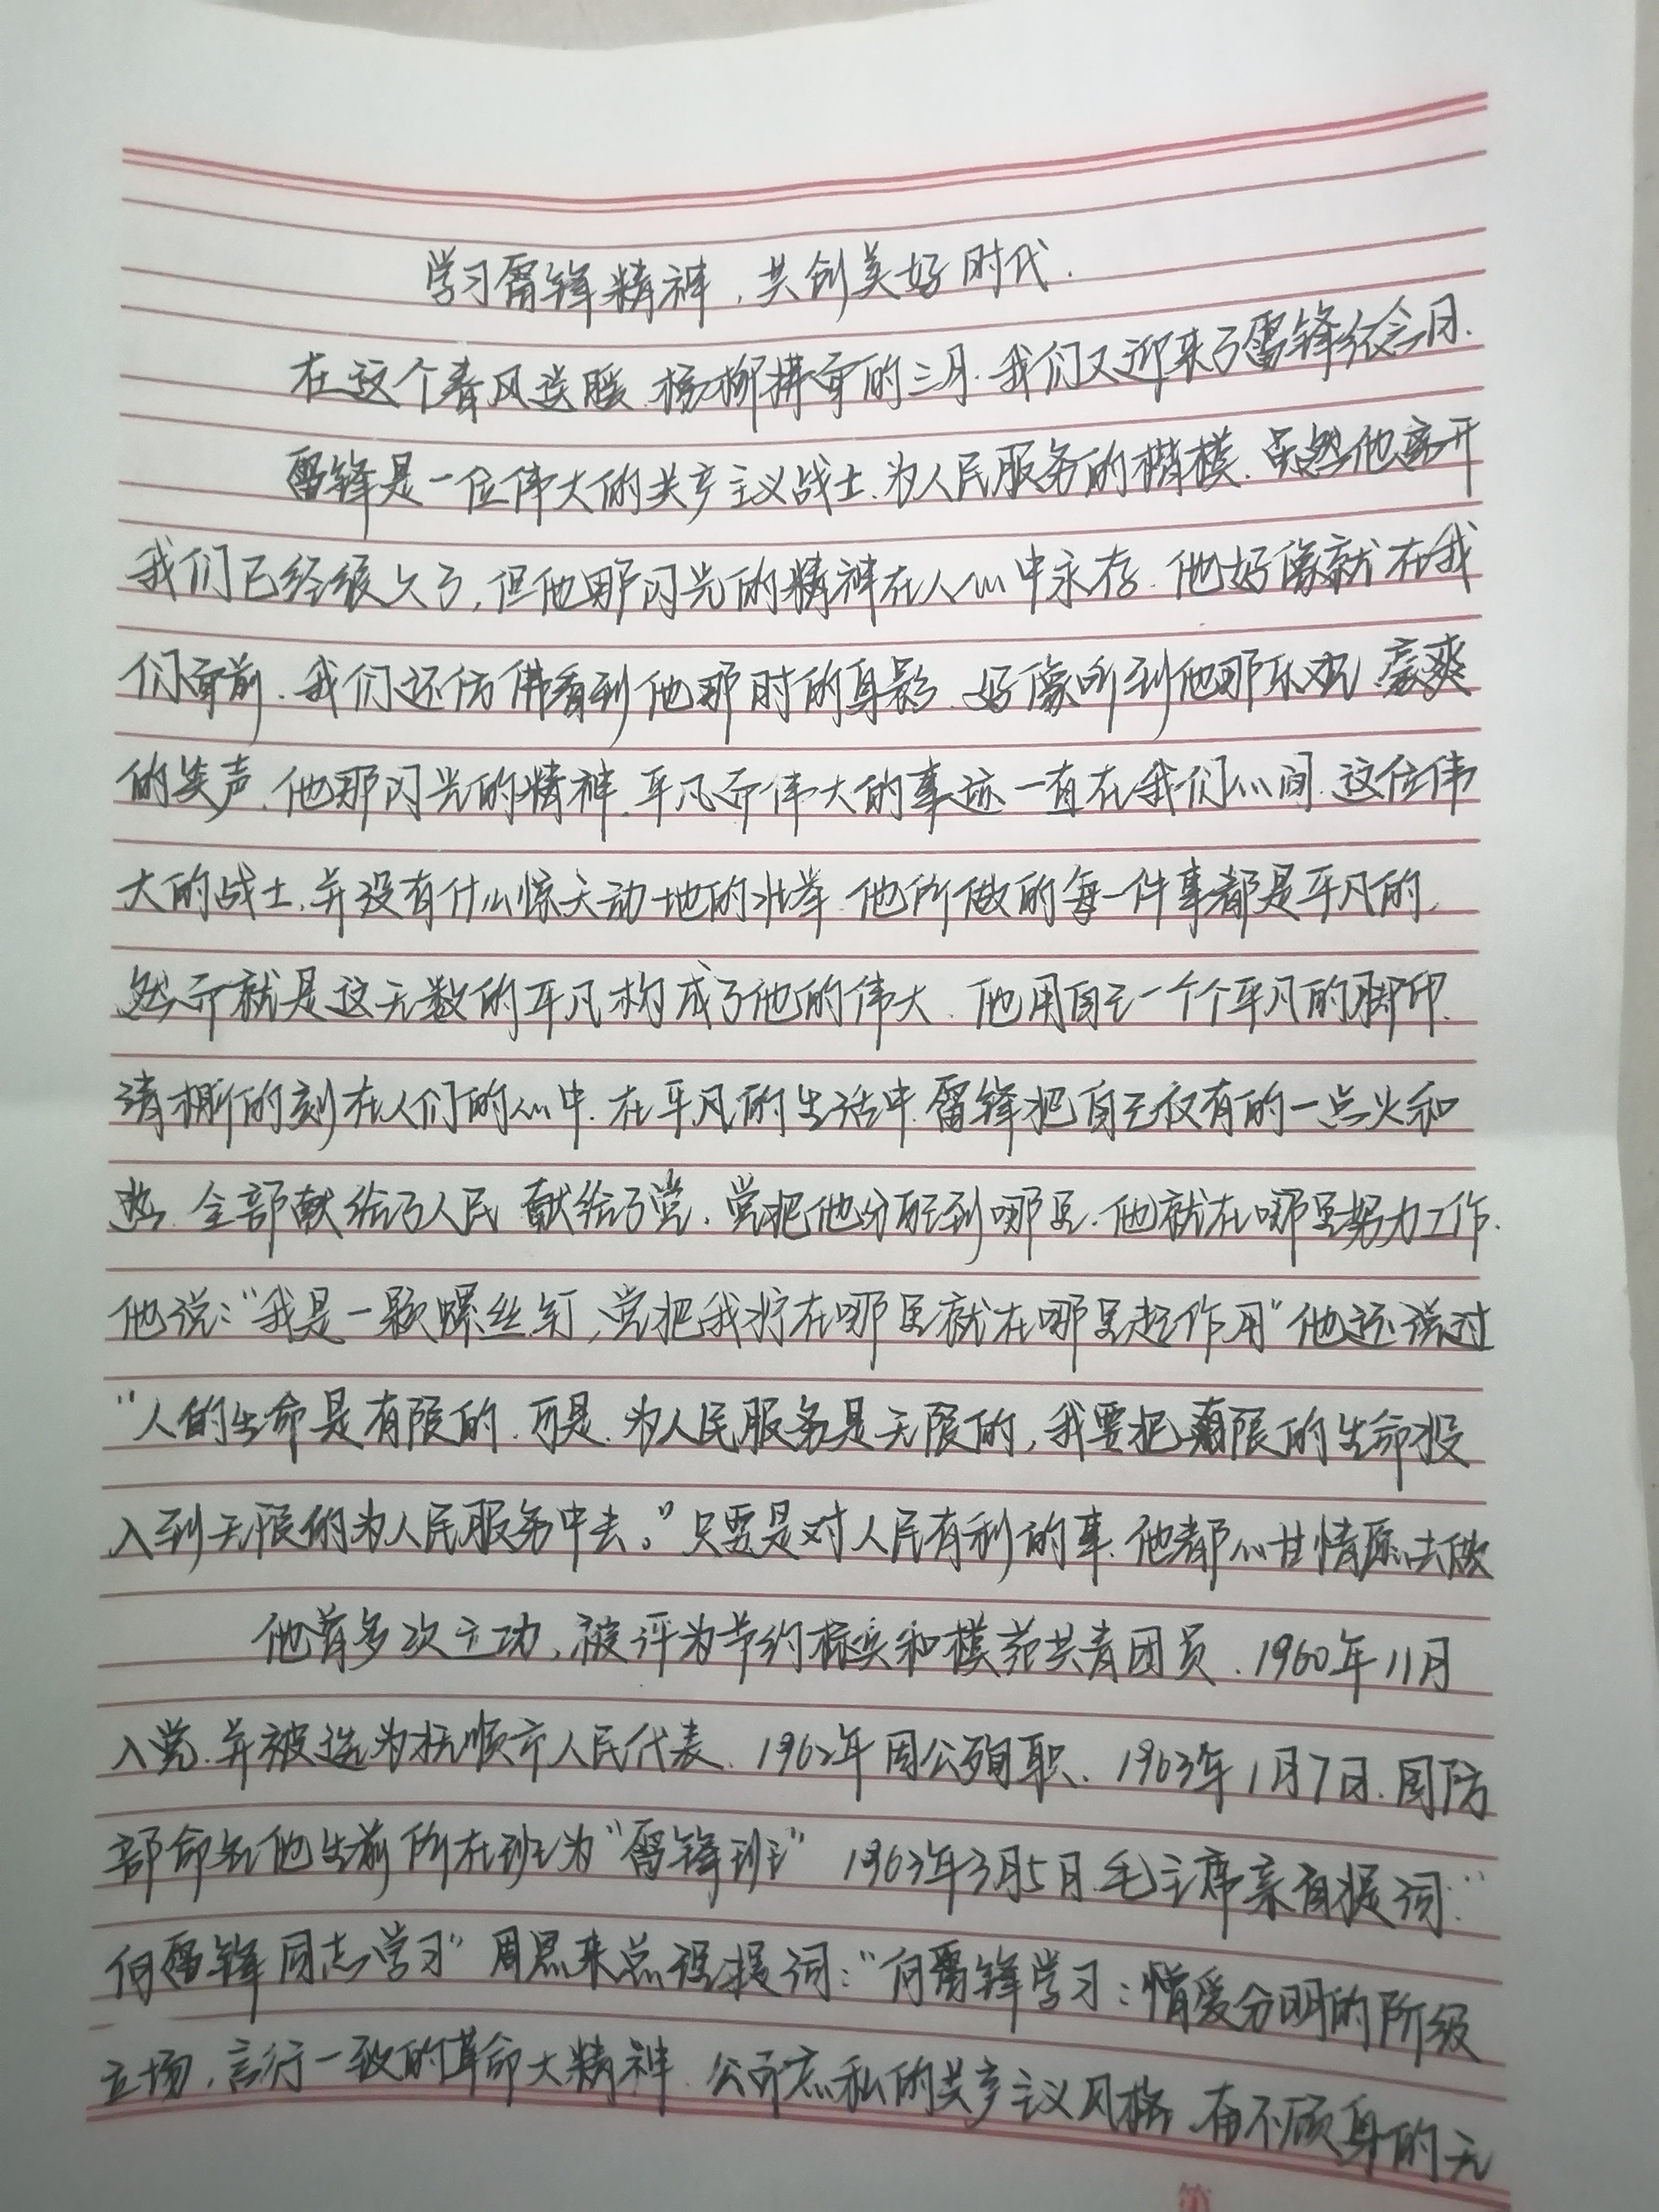 学习雷锋精神，共创美好时代.
在这个春风送暖.杨柳拂面的三月.我们又迎来了雷锋纪念日.
雷锋是一位伟大的共产主义战士.为人民服务的楷模.虽然他离开
我们已经很久了，但他那闪光的精神在人心中永存.他好像就在我
们面前.我们还仿佛看到他那时的身影.好像听到他那乐观、豪爽
的笑声.他那闪光的精神.平凡而伟大的事迹一直在我们心间.这位伟
大的战士.并没有什么惊天动地的壮举.他所做的每一件事都是平凡的，
然而就是这无数的平凡构成了他的伟大.他用自己一个个平凡的脚印.
清晰的刻在人们的心中.在平凡的生活中.雷锋把自己仅有的一点火和
热.全部献给了人民 献给了党.党把他分配到哪里.他就在哪里努力工作.
他说：“我是一颗螺丝钉，党把我拧在哪里就在哪里起作用”他还说过
“人的生命是有限的.可是.为人民服务是无限的，我要把有限的生命投
入到无限的为人民服务中去。”只要是对人民有利的事.他都心甘情愿去做
他曾多次立功，被评为节约标兵和模范共青团员.1960年11月
入党.并被选为抚顺市人民代表.1962年因公殉职.1963年1月7日.国防
部命名他生前所在班为“雷锋班” 1963年3月5日.毛主席亲自提词：“
向雷锋同志学习” 周恩来总理提词：“向雷锋学习：憎爱分明的阶级
立场，言行一致的革命大精神.公而忘私的共产主义风格.奋不顾身的无
第